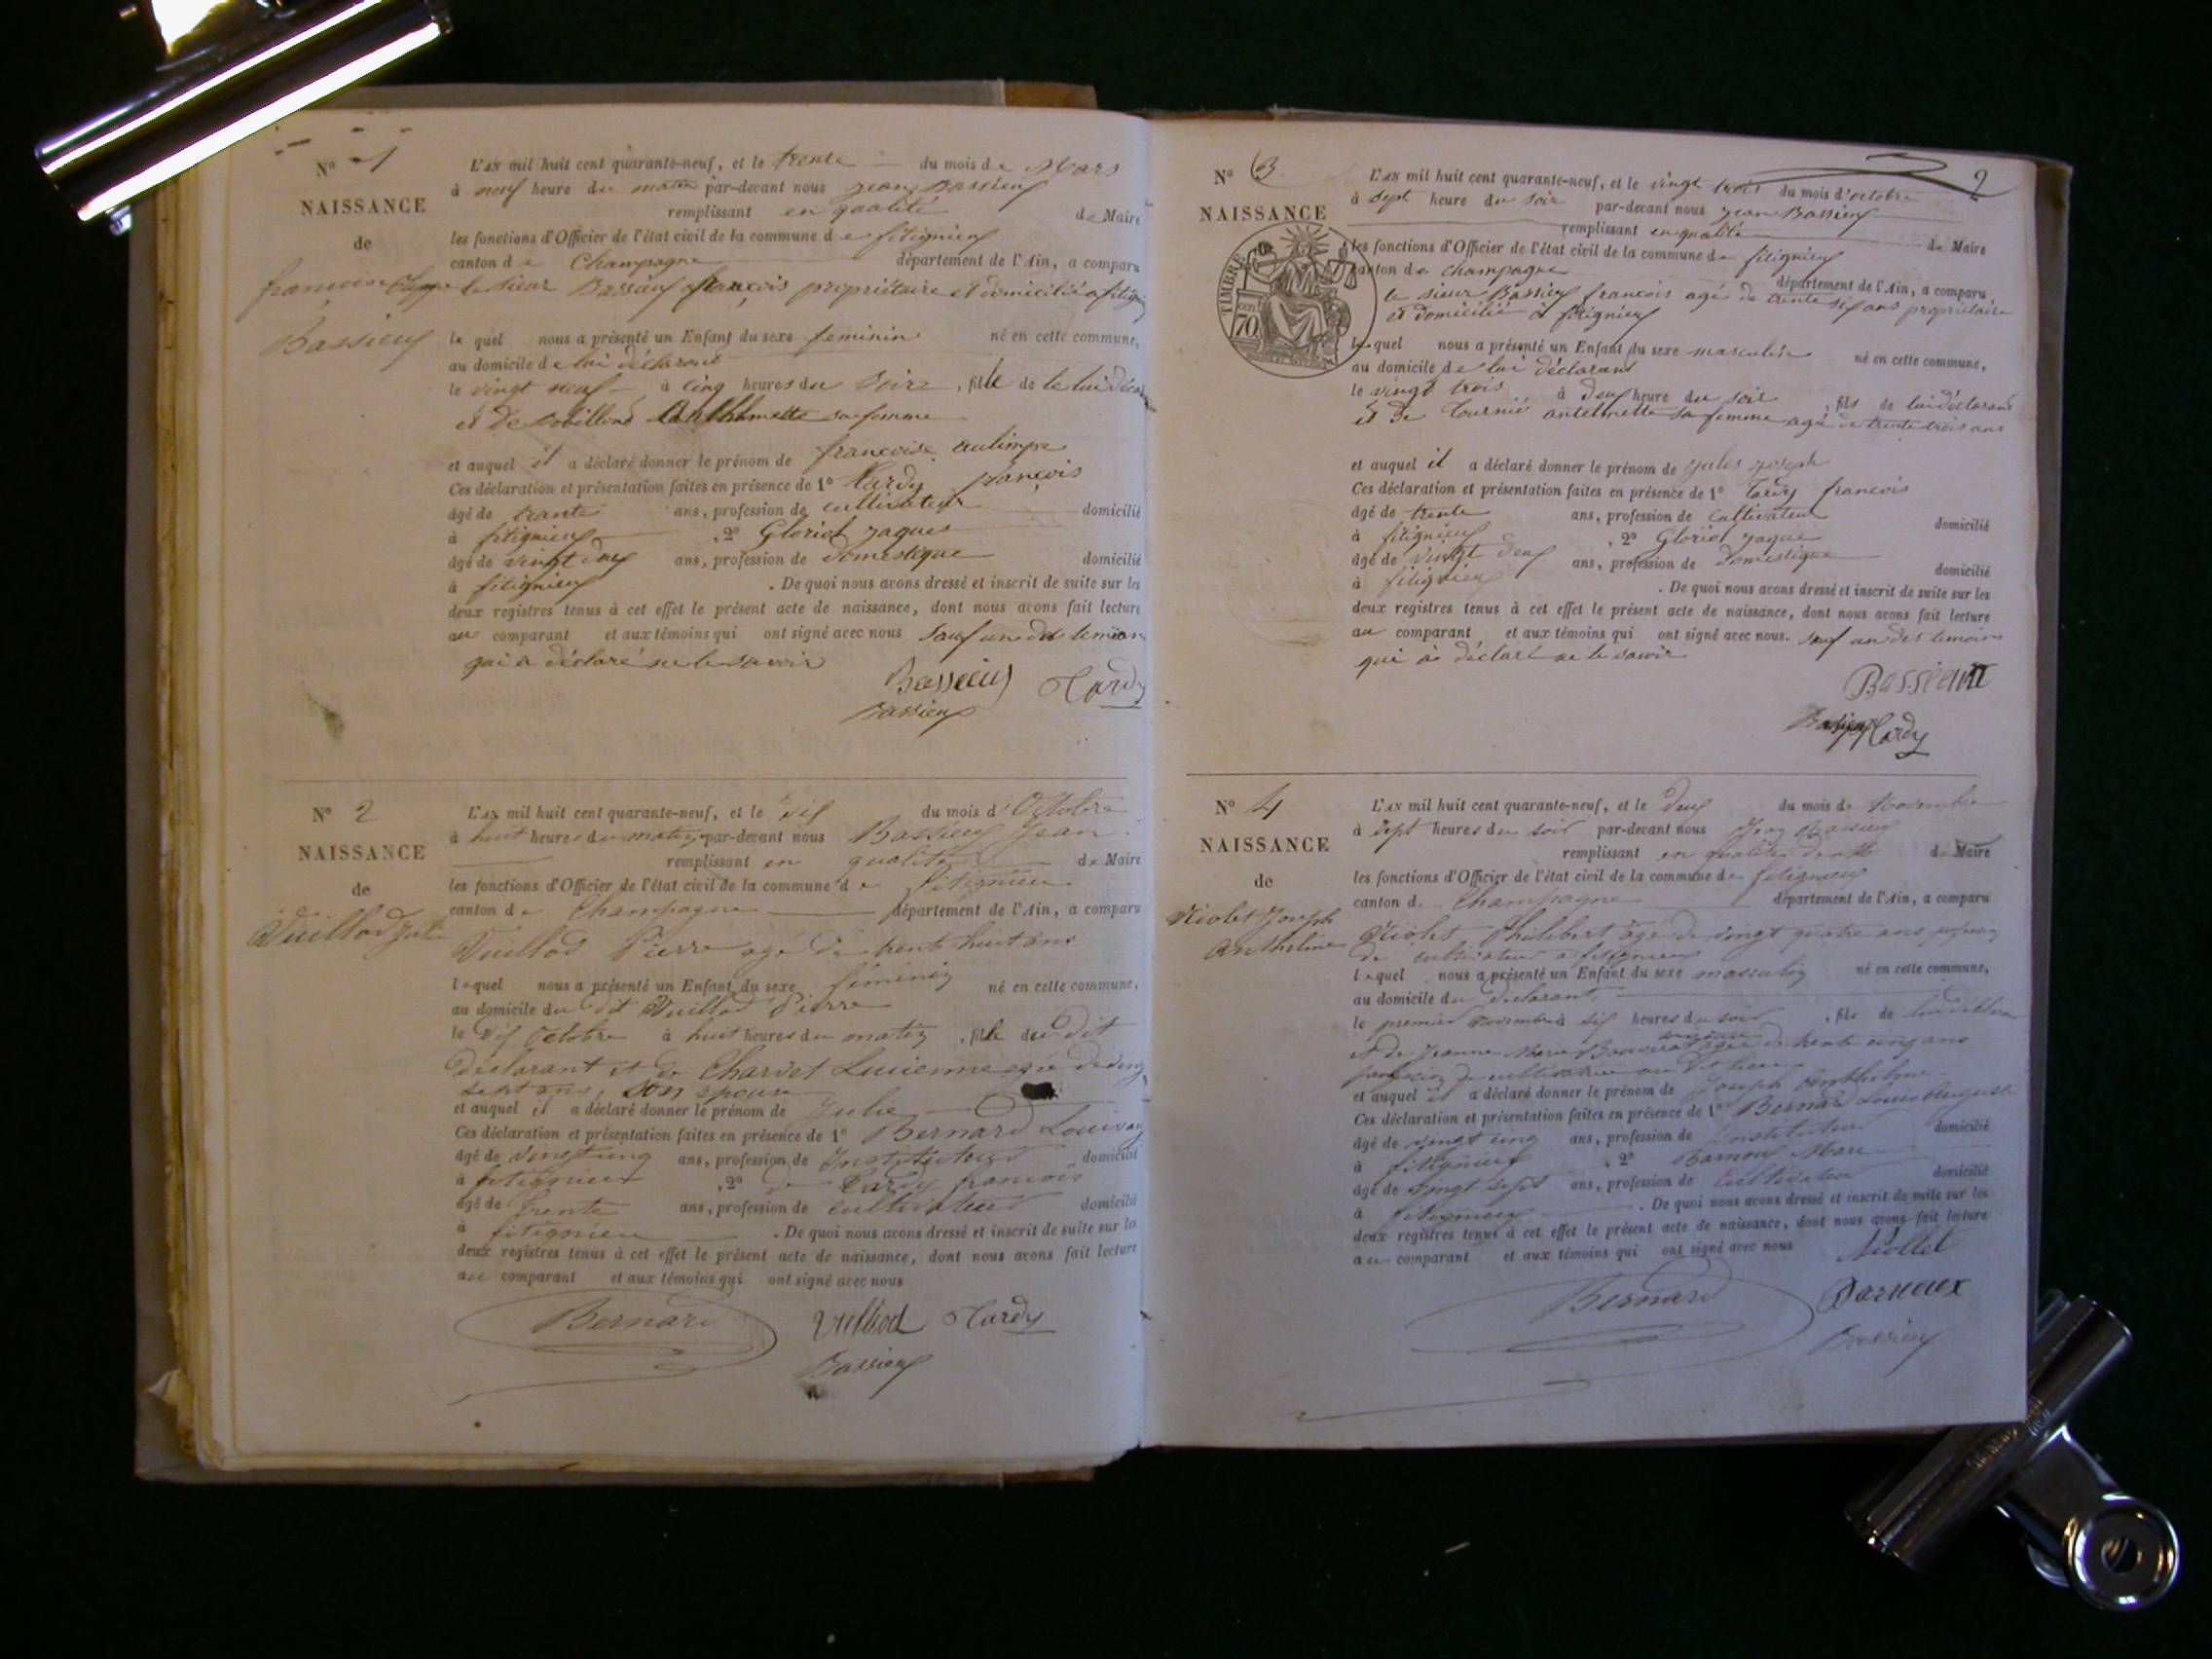 N° 1
NAISSANCE
de
françoise Olympe
Bassieux
L'AN mil huit cent quarante-neuf, et le trente du mois de Mars
à neuf heure du matin par-devant nous jean Bassieux
remplissant en qualité de Maire
les fonctions d'Officier de l'état civil de la commune de fitignieux
canton de Champagne département de l'Ain, a comparu
le sieur Bassieux françois propriétaire et domicilié a fitig
lequel nous a présenté un Enfant du sexe feminin né en cette commune,
au domicile de lui déclarant
le vingt neuf à cinq heures du soire, fille de lui
et de anthelmette sa femme
et auquel il a déclaré donner le prénom de francoise aulimpe
Ces déclaration et présentation faites en présence de 1° tardy françois
âgé de trante ans, profession de cultivateur domicilié
à fitignieux, 2° Gloriod jaques
âgé de vingt deux ans, profession de domestique domicilié
à fitignieux. De quoi nous avons dressé et inscrit de suite sur les
deux registres tenus à cet effet le présent acte de naissance, dont nous avons fait lecture
au comparant et aux témoins qui ont signé avec nous sauf un des temion
qui a déclaré ne le savoir
Bassieux Tardy
Bassieux
N° 2
NAISSANCE
de
Vuillod Julie
L'AN mil huit cent quarante-neuf, et le dix du mois d'Octobre
à huit heures du matin par-devant nous Bassieux Jean
remplissant en qualité de Maire
les fonctions d'Officier de l'état civil de la commune de fitignieu
canton de Champagne département de l'Ain, a comparu
Vuillod Pierre agé de trente huit ans
lequel nous a présenté un Enfant du sexe féminin né en cette commune,
au domicile du dit Vuillod Pierre
le dix Octobre à huit heures du matin, fille du dit
déclarant et de Charvet Lucienne agée de
sept ans, son épouse
et auquel il a déclaré donner le prénom de Julie
Ces déclaration et présentation faites en présence de 1° Bernard Louis
âgé de vingt cinq ans, profession de Instituteur domicilié
à fitignieux, 2° Tardy francois
âgé de trente ans, profession de cultivateur domicilié
à fitignieu. De quoi nous avons dressé et inscrit de suite sur les
deux registres tenus à cet effet le présent acte de naissance, dont nous avons fait lecture
au comparant et aux témoins qui ont signé avec nous
Bernard Vuilliod Tardy
Bassieux
2
N° 3
NAISSANCE
TIMBRE
70
L'AN mil huit cent quarante-neuf, et le vingt trois du mois d'octobre
à sept heure du soir par-devant nous jean Bassieux
remplissant en qualité de Maire
les fonctions d'Officier de l'état civil de la commune de fitignieux
canton de champagne département de l'Ain, a comparu
le sieur Bassieux francois agé de trente six ans propriétaire
et domicilié a fitignieux
lequel nous a présenté un Enfant du sexe masculin né en cette commune,
au domicile de lui déclarant
le vingt trois à deux heure du soir, fils de lui déclarant
et de antelmette sa femme agé de trente trois ans
et auquel il a déclaré donner le prénom de jules joseph
Ces déclaration et présentation faites en présence de 1° tardy francois
âgé de trente ans, profession de cultivateur domicilié
à fitignieux, 2° Gloriod jaque
âgé de vingt deux ans, profession de domestique domicilié
à fitignieux. De quoi nous avons dressé et inscrit de suite sur les
deux registres tenus à cet effet le présent acte de naissance, dont nous avons fait lecture
au comparant et aux témoins qui ont signé avec nous. sauf un des temoins
qui a déclaré ne le savoir
Bassieux
Bassieux Tardy
N° 4
NAISSANCE
de
Niolet Joseph
Anthelme
L'AN mil huit cent quarante-neuf, et le deux du mois de Novembre
à sept heures du soir par-devant nous Jean Bassieux
remplissant en qualité de Maire
les fonctions d'Officier de l'état civil de la commune de fitignieux
canton de Champagne département de l'Ain, a comparu
Niolet Philibert agé de vingt quatre ans
de cultivateur a fitignieux
lequel nous a présenté un Enfant du sexe masculin né en cette commune,
au domicile du déclarant
le premier novembre à six heures du soir, fils de lui déclarant
et de Jeanne Marie agée de trente cinq ans
profession de cultivatrice au dit lieu
et auquel il a déclaré donner le prénom de Joseph Anthelme
Ces déclaration et présentation faites en présence de 1° Bernard Louis Auguste
âgé de vingt cinq ans, profession de Instituteur domicilié
à fitignieux, 2° Barnoux Marc
âgé de vingt sept ans, profession de cultivateur domicilié
à fitignieux. De quoi nous avons dressé et inscrit de suite sur les
deux registres tenus à cet effet le présent acte de naissance, dont nous avons fait lecture
au comparant et aux témoins qui ont signé avec nous Niollet
Bernard Darnoux
Bassieux